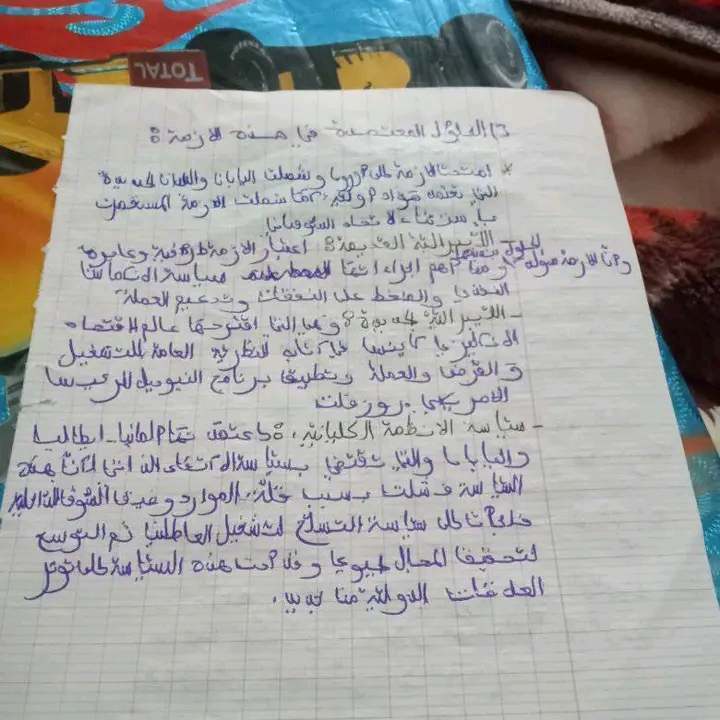 TOTAL
الحلول المعتمدة في هذه الازمة:
* امتدت الازمة إلى اوروبا وشملت اليابان والبلدان الجديدة
التي تعتمد مواد اولية، كما شملت الازمة المستعمرات
باستثناء الاتحاد السوفياتي
الليبرالية القديمة: اعتبار الازمة ظرفية وعابرة
وان الازمة
ومن اهم اجراءاتها سياسة الانكماش
النقدي والضغط على النفقات وتدعيم العملة
- الليبرالية الجديدة: وهي التي اقترحها عالم الاقتصاد
الانكليزي كاينس في كتاب النظرية العامة للتشغيل
و القرض والعملة وتطبيق برنامج النيوديل للرئيس
الامريكي روزفلت
- سياسة الانظمة الكليانية: المانيا - ايطاليا
واليابان والتي تقتضي بسياسة الاكتفاء الذاتي لكن هذه
السياسة فشلت بسبب قلة الموارد وضيق السوق الداخلية
إلى سياسة التسلح لتشغيل العاطلين ثم التوسع
لتحقيق المجال الحيوي وقد ادت هذه السياسة إلى توتر
العلاقات الدولية من جديد.